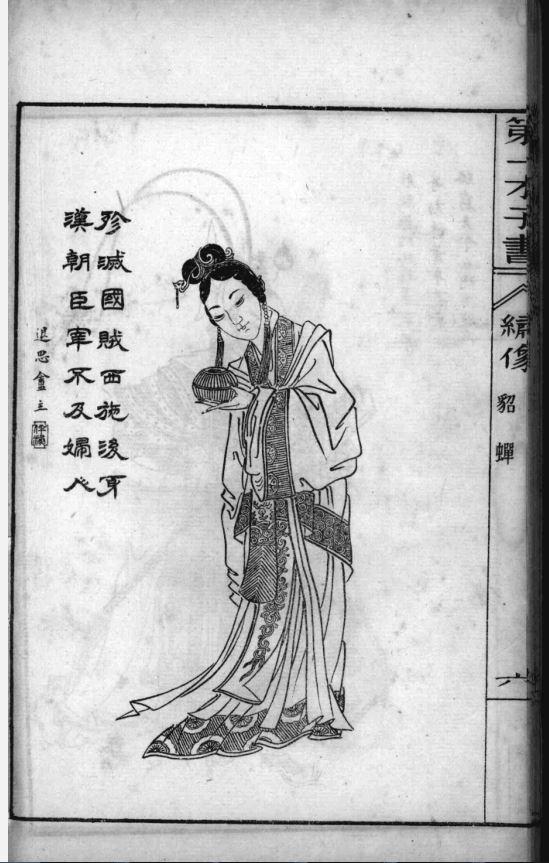 第一才子書
繡像
貂蟬
殄滅國賊西施後身
漢朝臣宰不及婦人
退思盦主